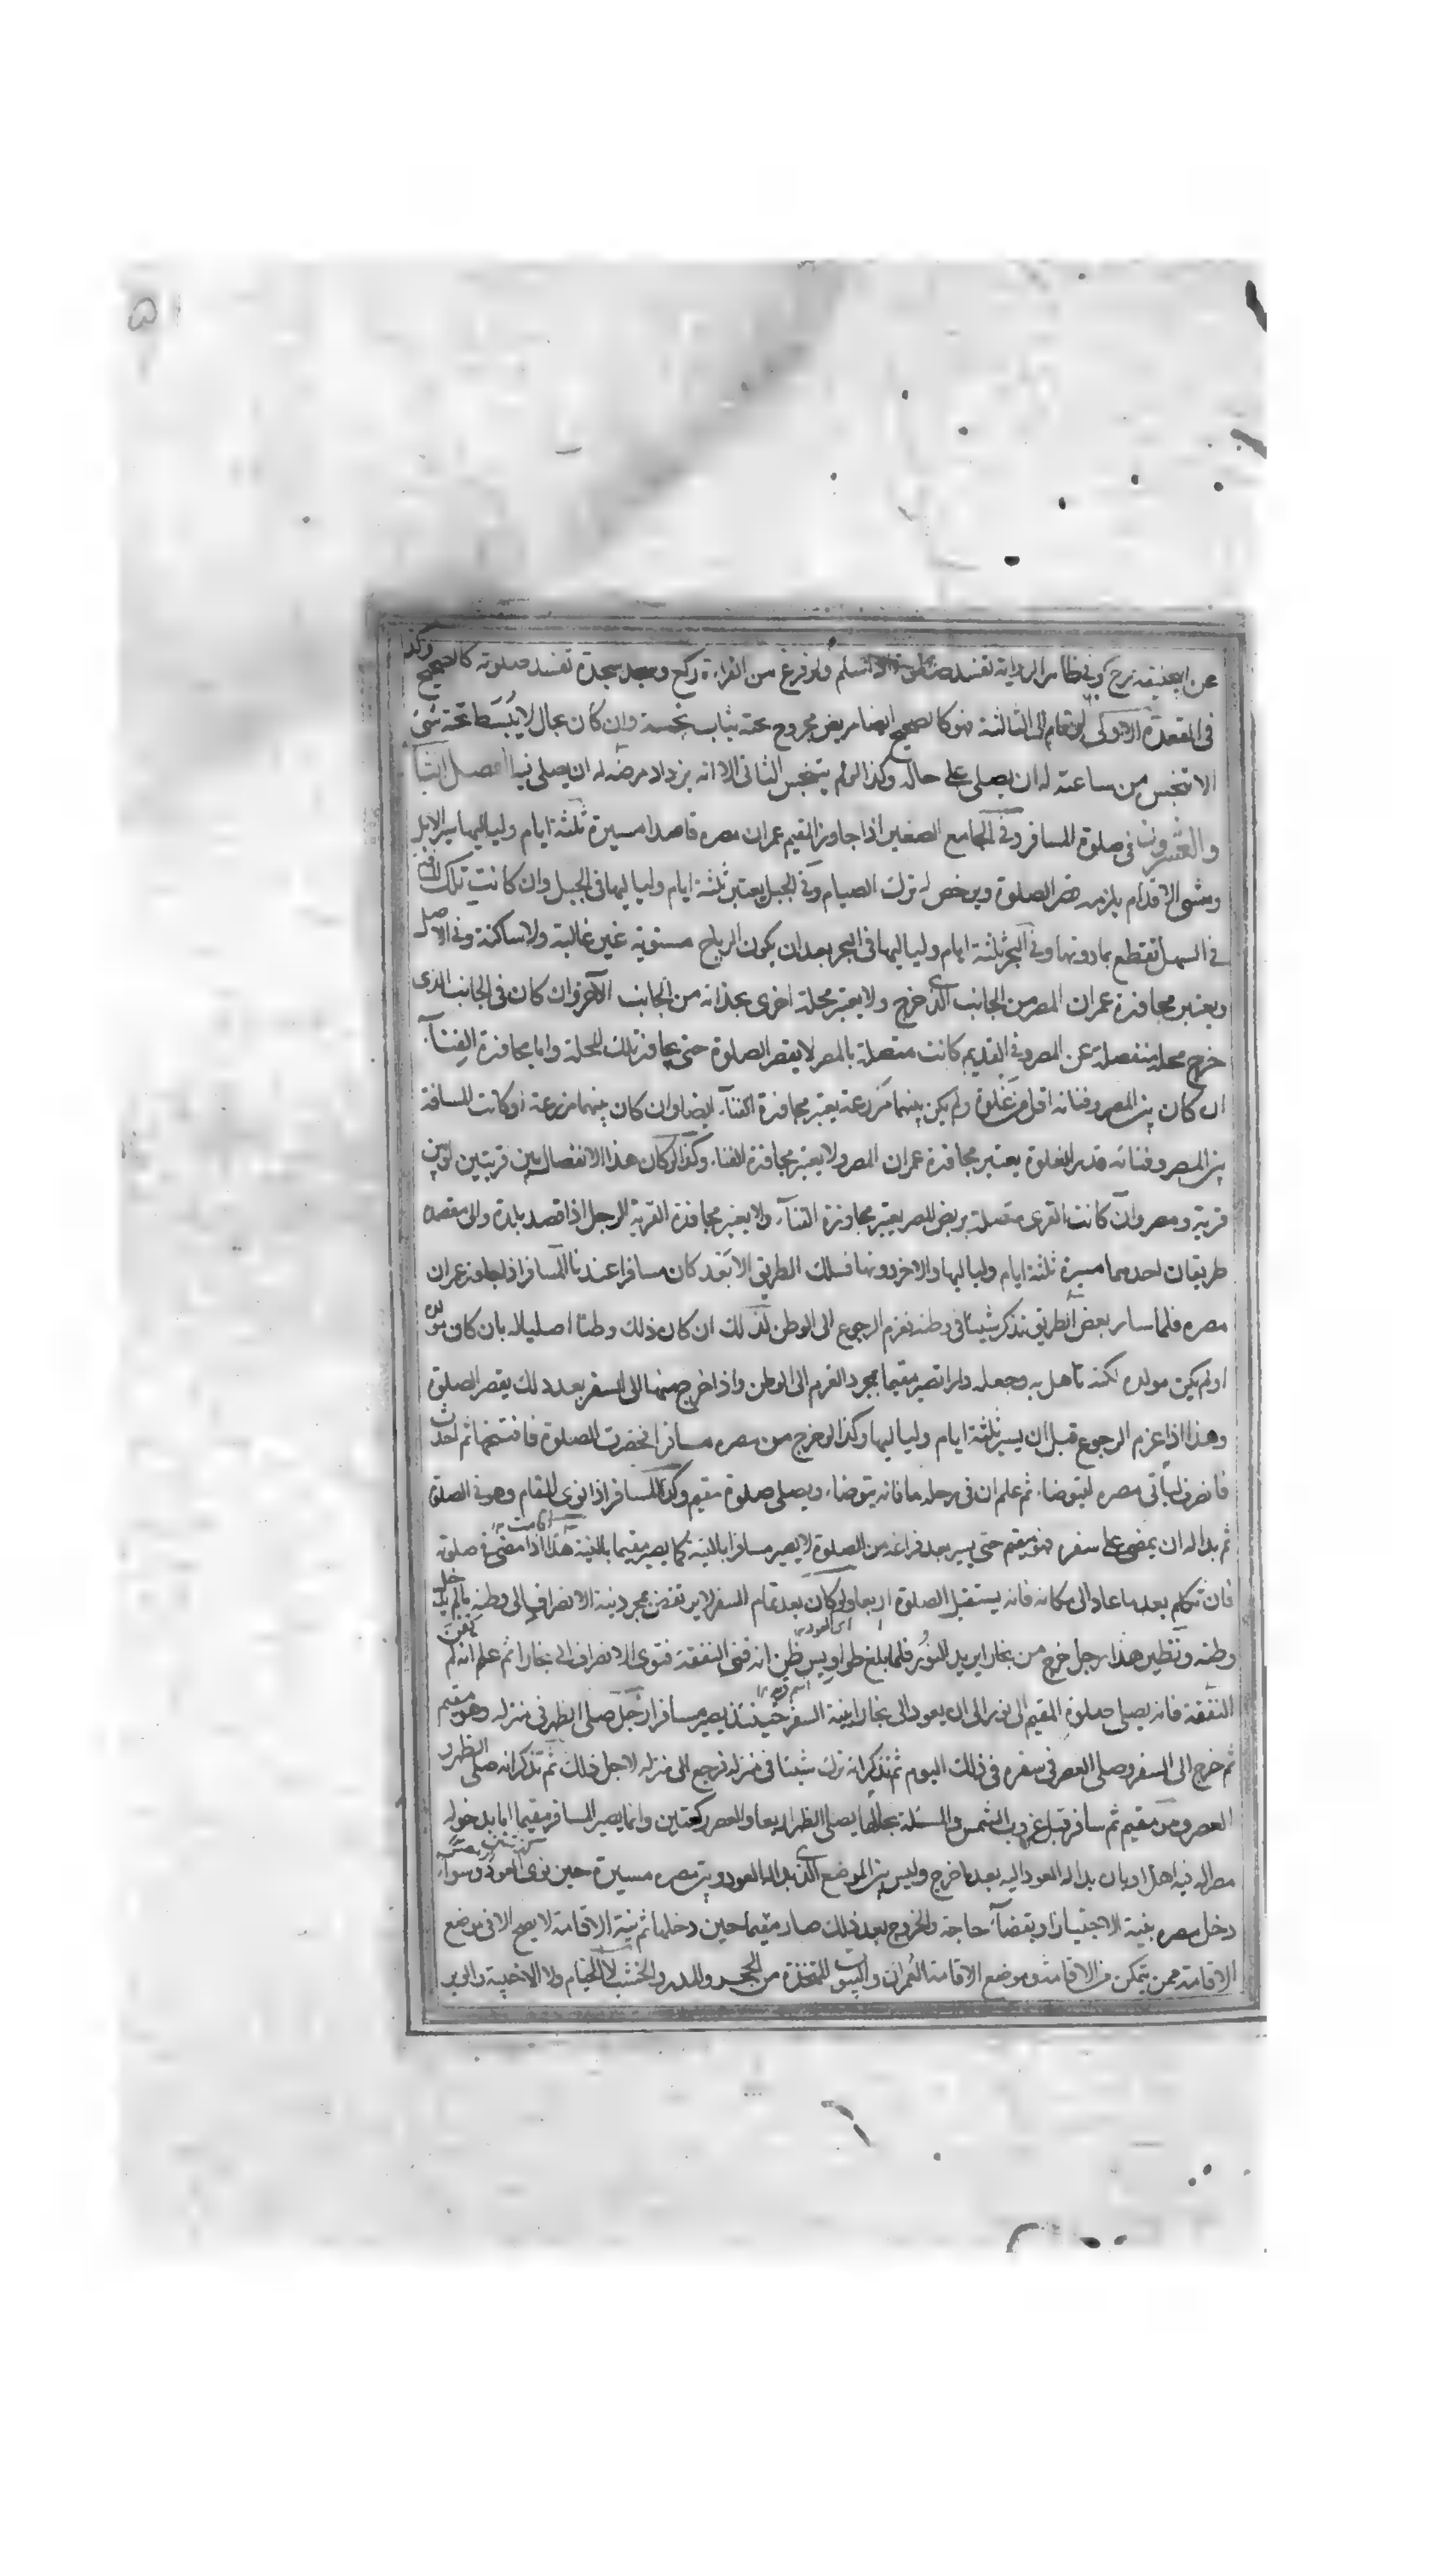 ۵۱
عن ابيحنيفة رح وفي ظاهر الرواية تفسد صلوته سلم ولو فرغ من القراءة ركع وسجد سجدة تفسد صلوته كالصحيح وكذا
في القعدة الاولى لو قام الى الثالثة فهو كالصحيح ايضا مريض مجروح تحته ثياب نجسة وان كان بحال لا يبسط تحته شئ
الا تنجس من ساعته له ان يصلى على حاله وكذا لو لم يتنجس الثانى الا انه يزداد مرضه له ان يصلى فيه الفصل الثانى
والعشرون في صلوة المسافر وفي الجامع الصغير اذا جاوز المقيم عمران مصره قاصدا مسيرة ثلثة ايام ولياليها سير الابل
ومشى الاقدام يلزمه قصر الصلوة ويرخص له ترك الصيام وفي الجبل يعتبر ثلثة ايام ولياليها في الجبل وان كانت تلك
في السهل تقطع بما دونها وفي البحر ثلثة ايام ولياليها في البحر بعد ان يكون الرياح مستوية غير غالبة ولا ساكنة وفي الاصل
ويعتبر مجاوزة عمران المصر من الجانب الذى خرج ولا يعتبر محلة اخرى بحذائه من الجانب الآخر وان كان في الجانب الذى
خرج محلة منفصلة عن المصر وفي القديم كانت متصلة بالمصر لا يقصر الصلوة حتى يجاوز تلك المحلة واما مجاوزة الفناء
ان كان بين المصر وفنائه اقل من غلوة ولم يكن بينهما مزرعة يعتبر مجاوزة الفناء ايضا وان كان بينهما مزرعة او كانت المسافة
بين المصر وفنائه قدر الغلوة يعتبر مجاوزة عمران المصر ولا يعتبر مجاوزة الفناء وكذا لو كان هذا الانفصال بين قريتين او بين
قرية ومصر وان كانت القرى متصلة بربض المصر يعتبر مجاوزة الفناء ولا يعتبر مجاوزة القرية الرجل اذا قصد بلدة والى مقصده
طريقان احدهما مسيرة ثلثة ايام ولياليها والاخر دونها فسلك الطريق الابعد كان مسافرا عندنا المسافر اذا جاوز عمران
مصره فلما سار بعض الطريق تذكر شيئا في وطنه فعزم الرجوع الى الوطن لذلك ان كان ذلك وطنا اصليا له بان كان مولده
او لم يكن مولده لكنه تاهل به وجعله دارا تصير مقيما بمجرد العزم الى الوطن واذا خرج منها الى السفر بعد ذلك يقصر الصلوة
وهذا اذا عزم الرجوع قبل ان يسير ثلثة ايام ولياليها وكذا لو خرج من مصره مسافرا فحضرت الصلوة فافتتحها ثم احدث
فانصرف ليأتى مصره ليتوضاء ثم علم ان في رحله ماء فانه يتوضاء ويصلى صلوة مقيم وكذا المسافر اذا نوى المقام وهو في الصلوة
ثم بدا له ان يمضى على سفره فهو مقيم حتى يسير بعد فراغه من الصلوة لا يصير مسافرا بالنية كما يصير مقيما بالنية هذا اذا مضى في صلوته
فان تكلم بعد ما عاد الى مكانه فانه يستقبل الصلوة اربعا ولو كان بعد تمام السفر لا يرتفض بمجرد نية الانصراف الى وطنه ما لم يدخل
وطنه ونظير هذا رجل خرج من بخارا يريد النور فلما بلغ طواويس ظن انه فنى النفقة فنوى الانصراف الى بخارا ثم علم انه لم تفن
النفقة فانه يصلى صلوة المقيم الى نور الى ان يعود الى بخارا بنية السفر حينئذ يصير مسافرا رجل صلى الظهر في منزله وهو مقيم
ثم خرج الى السفر وصلى العصر في سفره في ذلك اليوم ثم تذكر انه ترك شيئا في منزله فرجع الى منزله لاجل ذلك ثم تذكر انه صلى الظهر و
العصر وهو مقيم ثم سافر قبل غروب الشمس والمسئلة بحالها يصلى الظهر اربعا والعصر ركعتين وانما يصير المسافر مقيما اما بدخوله
مصرا له فيه اهل او بان بدا له العود اليه بعد ما خرج وليس بين الموضع الذى بدا له العود وبين مصره مسيرة حين نوى العود وسواء
دخل مصره بنية الاجتياز او بقضاء حاجة والخروج بعد ذلك صار مقيما حين دخلها ثم نية الاقامة لا يصح الا في موضع
الاقامة ممن يتمكن من الاقامة وموضع الاقامة العمران والبيوت المتخذة من الحجر والمدر والخشب لا الخيام ولا الاخبية والوبر